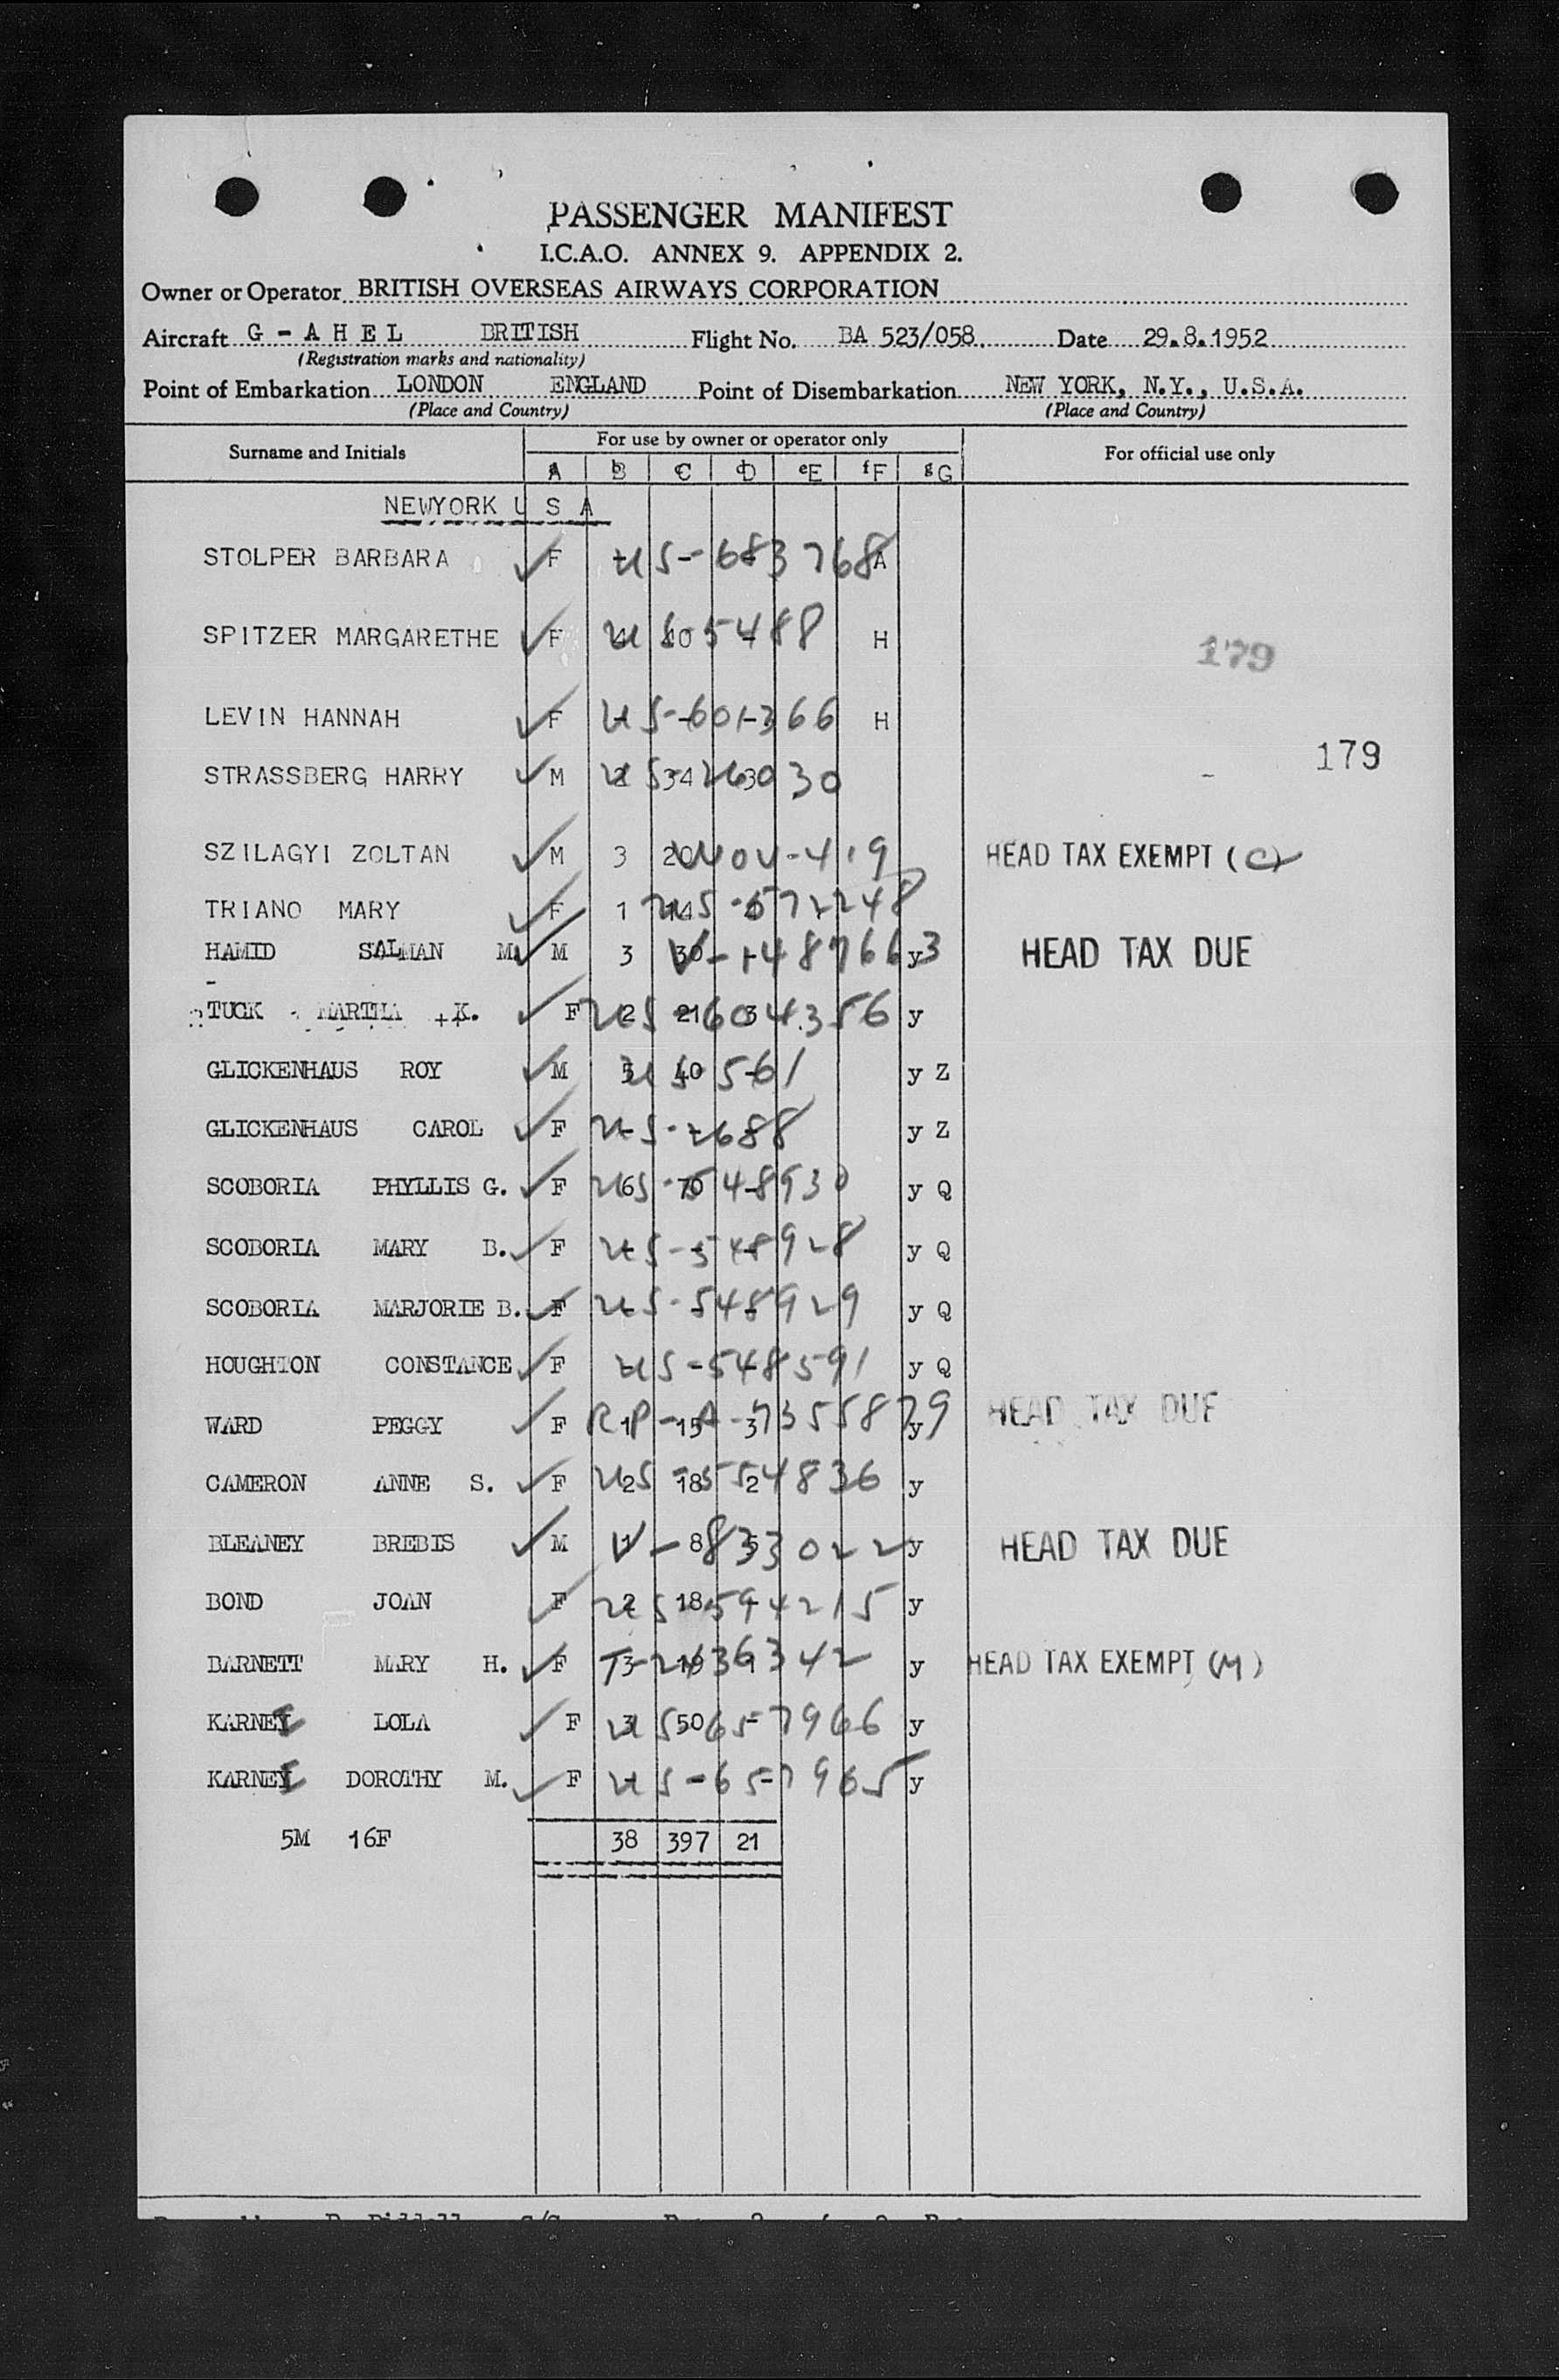 PASSENGER MANIFEST
I.C.A.O. ANNEX 9. APPENDIX 2.
Owner or Operator BRITISH OVERSEAS AIRWAYS CORPORATION
Aircraft G - A H E L BRITISH Flight No. BA 523/058. Date 29.8.1952
(Registration marks and nationality)
Point of Embarkation LONDON ENGLAND Point of Disembarkation NEW YORK, N.Y., U.S.A.
(Place and Country) (Place and Country)
Surname and Initials For use by owner or operator only For official use only
A B C D E F G
NEWYORK U S A
STOLPER BARBARA F US-683768 A
SPITZER MARGARETHE F US 5488 H
179
LEVIN HANNAH F US-601366 H
179
STRASSBERG HARRY M US 26030
SZILAGYI ZOLTAN M 3 20 HEAD TAX EXEMPT (C)
TRIANO MARY F 1 14 US-572248
HAMID SALMAN M. M 3 30 V-1487663 y HEAD TAX DUE
TUCK MARTHA K. F 2 21 3 US-604356 y
GLICKENHAUS ROY M 5 40 US 561 y Z
GLICKENHAUS CAROL F US-2688 y Z
SCOBORIA PHYLLIS G. F 6 70 US-548930 y Q
SCOBORIA MARY B. F US-548928 y Q
SCOBORIA MARJORIE B. F US-548929 y Q
HOUGHTON CONSTANCE F US-548591 y Q
WARD PEGGY F 1 15 3 RP-A-7355879 y HEAD TAX DUE
CAMERON ANNE S. F 2 18 2 US-554836 y
BLEANEY BREBIS M 1 8 5 V-833022 y HEAD TAX DUE
BOND JOAN F 2 18 US 594215 y
BARNETT MARY H. F 3 19 1 T-2636342 y HEAD TAX EXEMPT (M)
KARNEY LOLA F 3 50 US 657966 y
KARNEY DOROTHY M. F US-657965 y
5M 16F 38 397 21